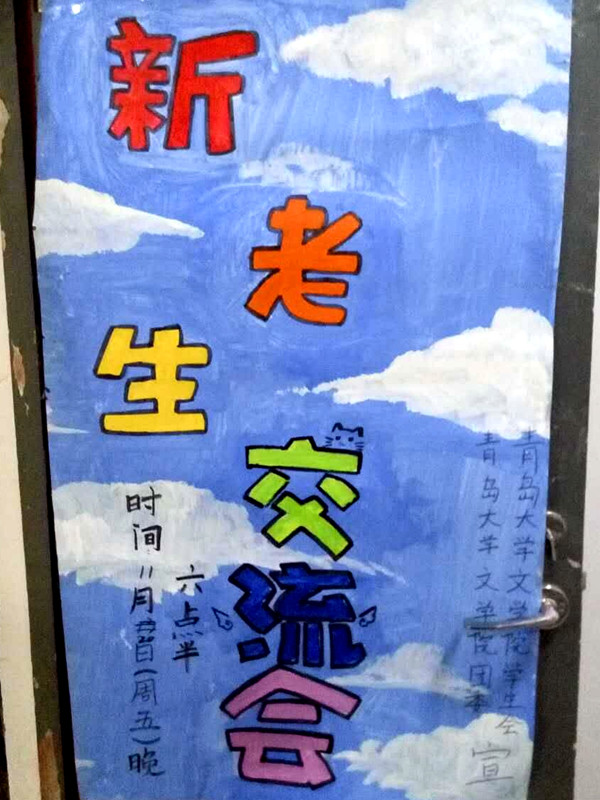 新
老
生
交流会
时间 11月廿日(周五)晚
六点半
青岛大学文学院学生会
青岛大学文学院团委
宣